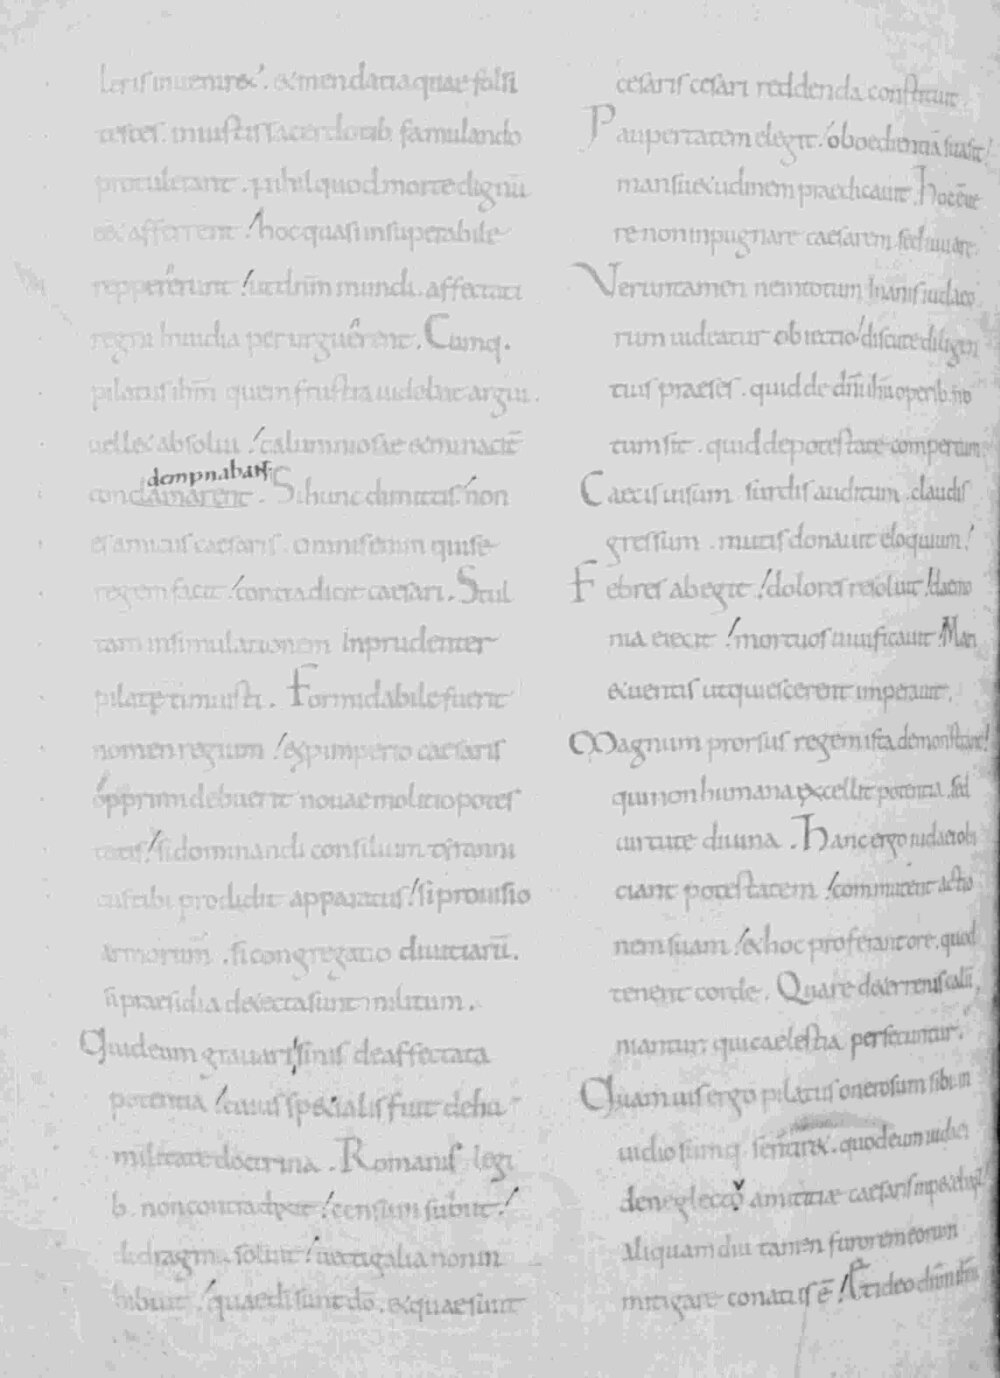 leris inueniret. & mendacia quae falsi
testes. iniustis sacerdotib. famulando
protulerant. nihil quod morte dignū
ēē& afferrent! hoc quasi insuperabile
reppererunt! ut dn̄m mundi. affectati
regni inuidia perurguerent. Cumq.
pilatus ihm̄ quem frustra uidebat argui.
uell& absolui! calumniosae & minaciē
dempnabant.
conclamarent. Si hunc dimittis. non
es amicus caesaris. omnis enim qui se
regem facit! contradicit caesari. Stul
tam insimulationem inprudenter
pilate timuisti. Formidabile fuerit
nomen regium! & p imperio caesaris
opprimi debuerit nouae molitio potes
tatis! si dominandi consilium tyranni
cus tibi prodidit apparatus! si prouisio
armorum. si congregatio diuitiarū.
si praesidia detecta sunt militum.
Quid eum grauari sinis de affectata
potentia! cuius specialis fuit de hu
militate doctrina. Romanis legi
b. non contradixit! censum subiit!
didragma soluit! uectigalia non in
hibuit! quae di sunt dō. & quae sunt
cesaris cesari reddenda constituit.
Paupertatem elegit! oboedientiā suasit!
mansu&udinem praedicauit. Hoc ē ue
re non inpugnare caesarem sed iuuare.
Veruntamen ne in totum inanis iudaeo
rum uideatur obiectio! discute diligen
tius praeses. quid de dn̄i ihū operib. no
tum sit. quid de potestate compertum.
Caecis uisum. surdis auditum. claudis
gressum. mutis donauit eloquium!
Febres abegit! dolores resoluit! daemo
nia eiecit! mortuos uiuificauit! Mari
& uentis ut quiescerent imperauit.
Magnum prorsus regem ista demonstrant!
qui non humana excellit potentia. sed
uirtute diuina. Hanc ergo iudaei obi
ciant potestatem! commutent actio
nem suam! & hoc proferant ore. quod
tenent corde. Quare de terrenis calū
niantur. qui caelestia persecuntur.
Quamuis ergo pilatus onerosum sibi in
uidiosumq. sentir&. quod eum iudaei
de neglecto amicitiae caesaris impe&ebant!
aliquamdiu tamen furorem eorum
mitigare conatus ē! Et ideo dn̄m ihm̄